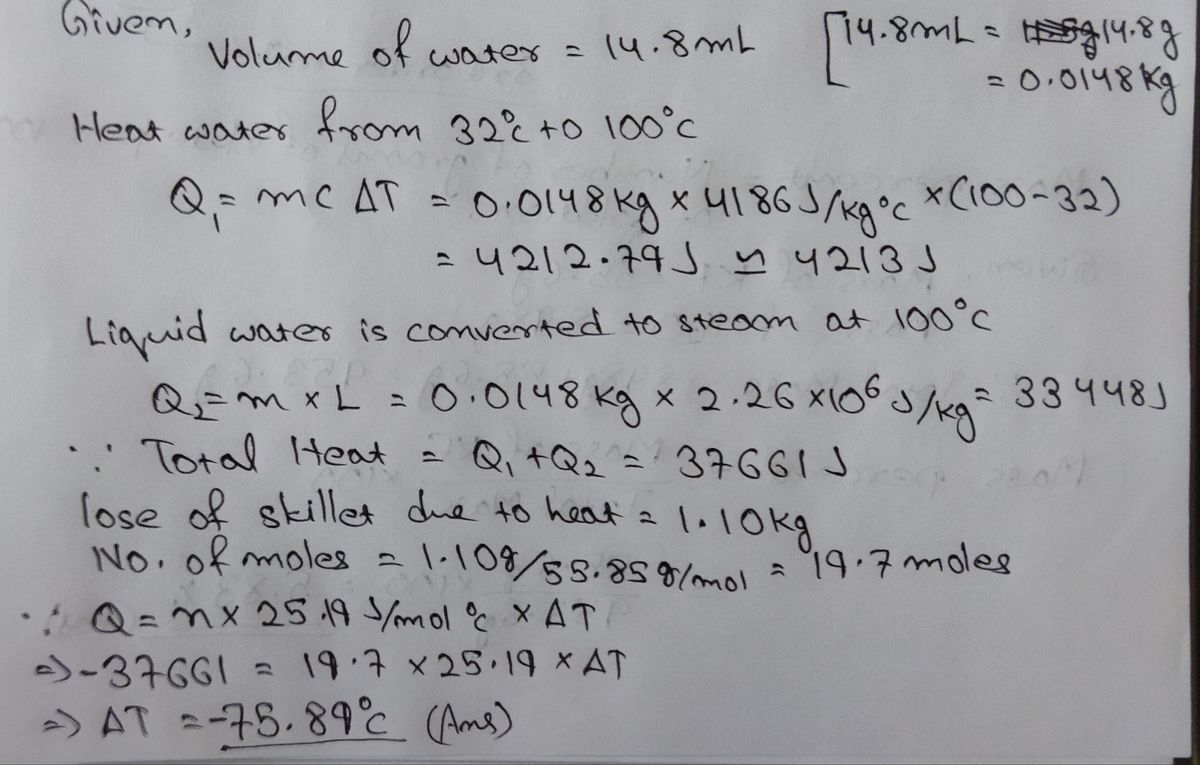 Given,
Volume of water = 14.8mL [14.8mL = 14.8g
= 0.0148 Kg
Heat water from 32°c to 100°c
Q₁ = mc ΔT = 0.0148 kg × 4186 J/kg°c × (100-32)
= 4212.79 J ≃ 4213 J
Liquid water is converted to steam at 100°c
Q₂ = m × L = 0.0148 kg × 2.26 ×10⁶ J/kg = 33448J
∵ Total Heat = Q₁ + Q₂ = 37661 J
lose of skillet due to heat = 1.10kg
No. of moles = 1.10g/55.85 g/mol = 19.7 moles
∴ Q = n × 25.19 J/mol °c × ΔT
=> -37661 = 19.7 × 25.19 × ΔT
=> ΔT = -75.89°c (Ans)